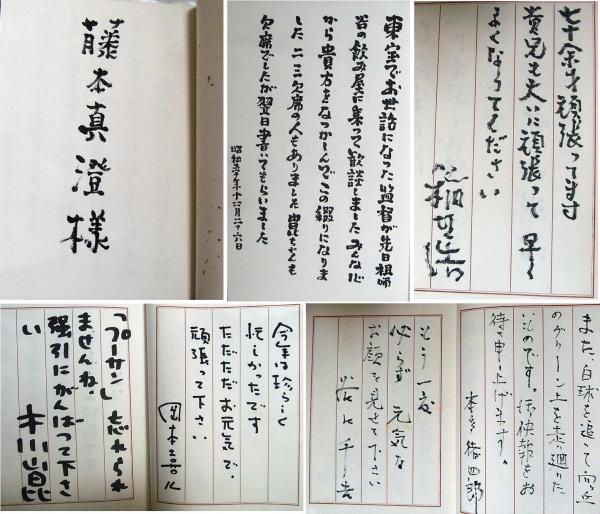 藤本真澄様
東宝でお世話になった監督が先日祖師
谷の飲み屋に集って歓談しました みんな心
から貴方をなつかしんでこの綴りになりま
した 二三欠席の人もありました 崑ちゃんも
欠席でしたが翌日書いてもらいました
昭和五十年十二月二十六日
七十余才頑張ってます
貴兄も大いに頑張って 早く
よくなってください
「プーサン」忘れられ
ませんね。
強引にがんばって下さ
い 市川崑
今年は珍らしく
忙しかったです
ただただお元気で。
頑張って下さい
岡本喜八
もう一度
必らず 元気な
お顔を見せて下さい
また、白球を追って向ヶ丘
のグリーン上を走り廻りた
いものです。快復報をお
待ち申し上げます。
本多猪四郎